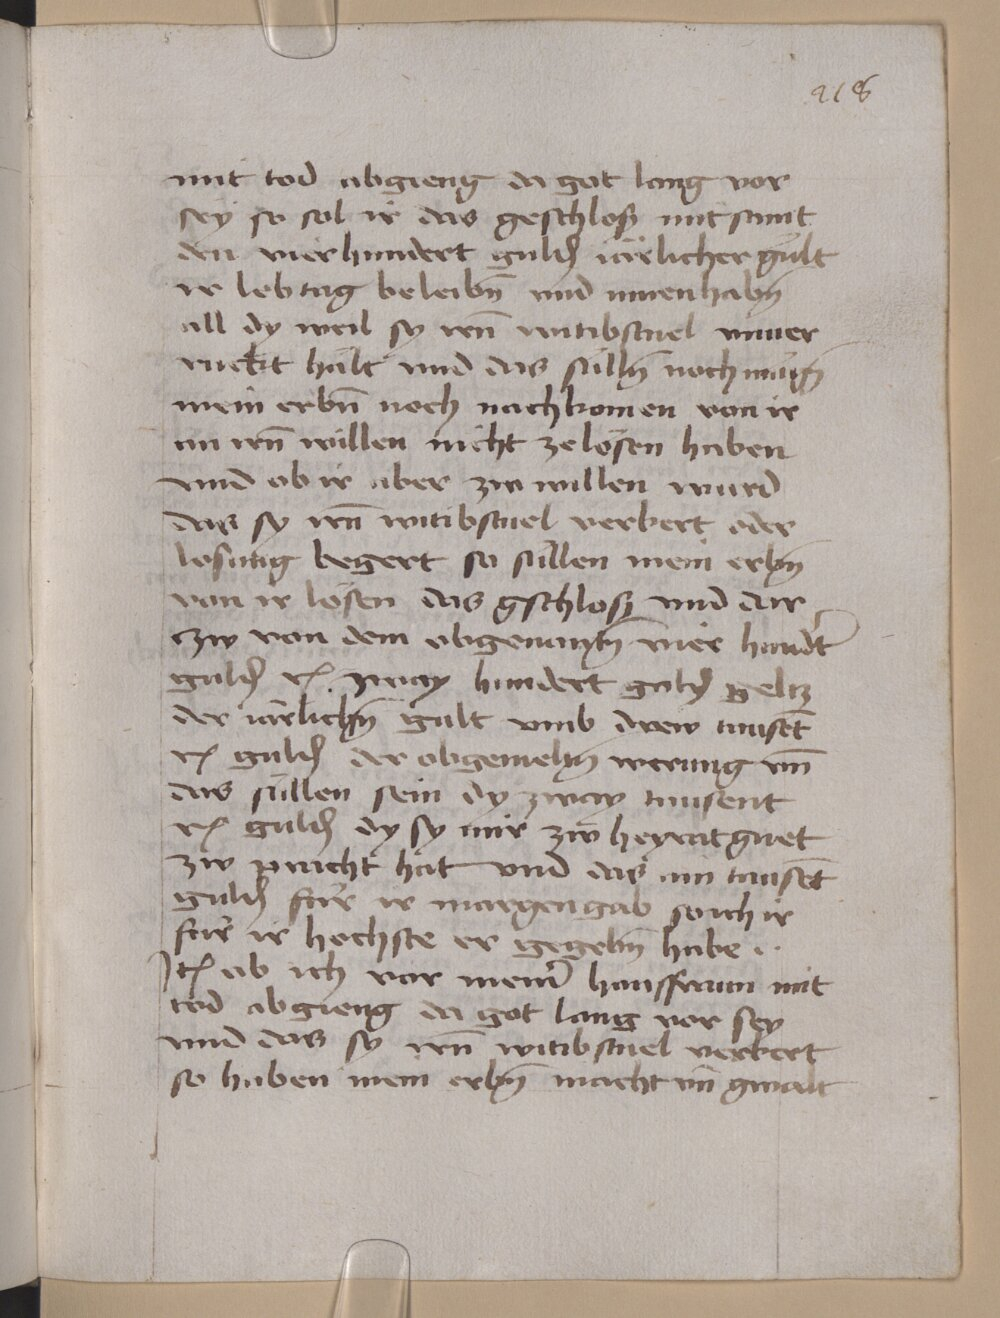 218
mit tod abgieng da got lang vor
sey so sol ir das geschloß mitsamt
den vierhundert guldn̄ iärlicher gült
ir lebtag beleibn̄ und innenhabn̄
all dy weil sy irn̄ witibstuel unuer
ruckt halt und das süllen noch mügn̄
mein erbn̄ noch nachkomen von ir
an irn̄ willen nicht zelösen haben
und ob ir aber zw willen wurd
das sy irn̄ witibstuel verkert oder
losung begert so süllen mein erbn̄
von ir lösen das gschloß und dar
zw von dem obgenantn̄ vier hundt̄
guldn̄ rh zway hundert guldn̄ geltz
der iärlichn̄ gült umb drew tausēt
rh guldn̄ der obgemeltn̄ werung vn̄
das süllen sein dy zway tausent
rh guldn̄ dy sy mir zw heyratguet
zw pracht hat und das ain tausēt
guldn̄ für ir margengab so ich ir
für ir hochste er gegebn̄ habe ..
Itn̄ ob ich vor meinr̄ hausfraun mit
tod abgieng da got lang vor sey
und das sy irn̄ witibstuel verkert
so haben mein erbn̄ macht vn̄ gwalt